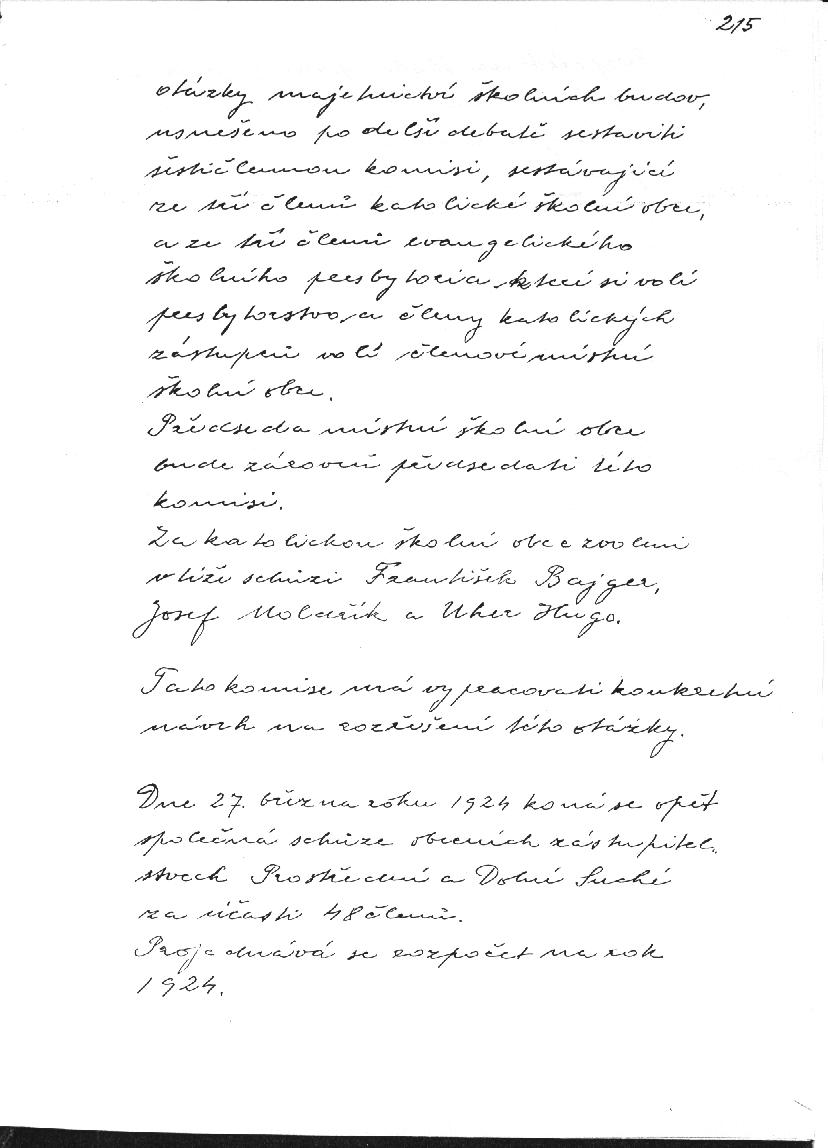 215
otázky majetnictví školních budov,
usnešeno po delší debatě sestaviti
šestičlennou komisi, sestávající
ze tří členů katolické školní obce,
a ze tří členů evangelického
školního presbyteria, kteří si volí
presbyterstvo, a členy katolických
zástupců volí členové místní
školní obce.
Předseda místní školní obce
bude zároveň předsedati této
komisi.
Za katolickou školní obec zvoleni
v téže schůzi František Bajger,
Josef Moldřík a Uher Hugo.
Tato komise má vypracovati konkretní
návrh na rozřešení této otázky.
Dne 27. března roku 1924 koná se opět
společná schůze obecních zastupitel-
stvech Prostřední a Dolní Suché
za účasti 48 členů.
Projednává se rozpočet na rok
1924.